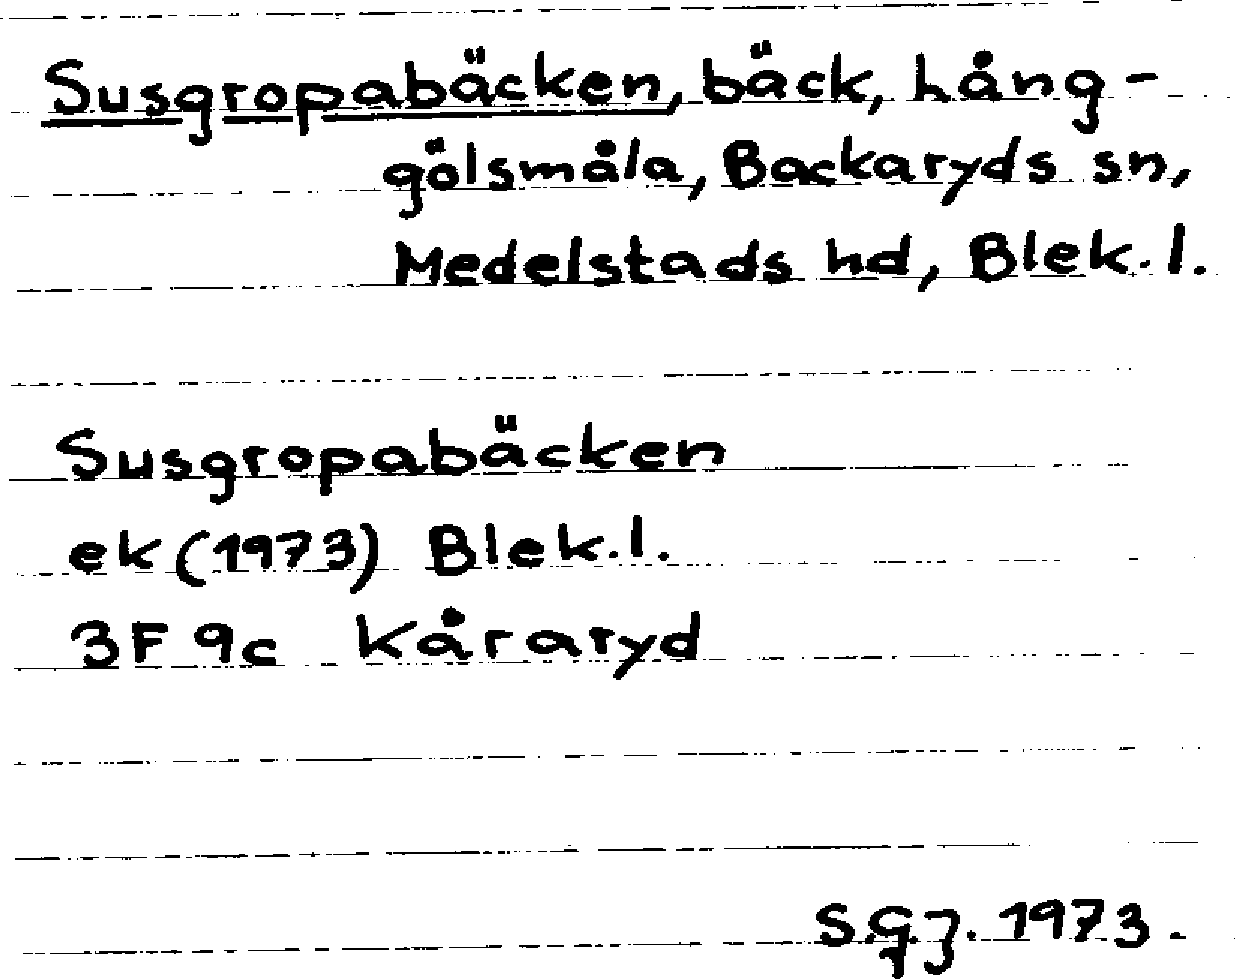 Susgropabäcken, bäck, Lång-
gölsmåla, Backaryds sn,
Medelstads hd, Blek. l.
Susgropabäcken
ek (1973) Blek. l.
3F 9c Kåraryd
S.G.J. 1973.